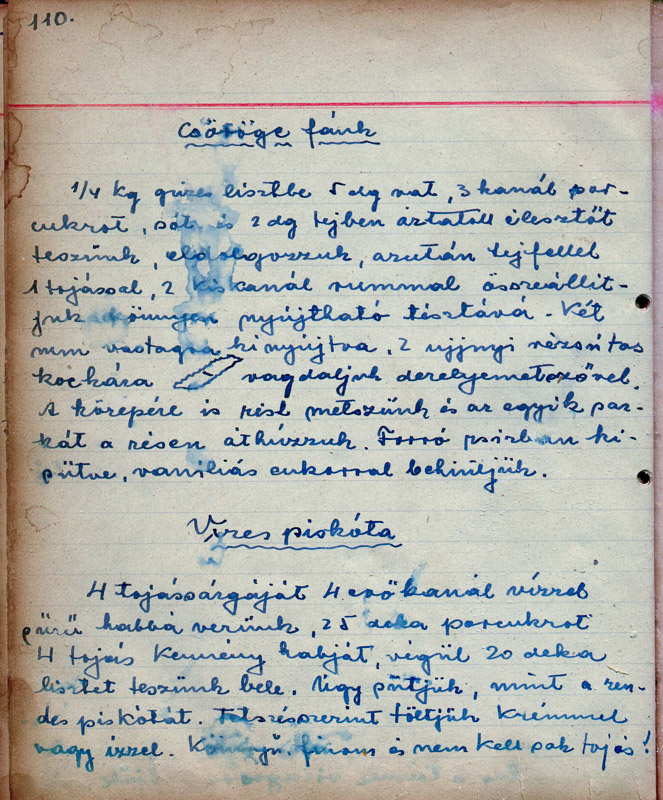 110.
Csöröge fánk
1/4 kg grizes lisztbe 5 dg vat, 3 kanál por-
cukrot, sót és 2 dg tejben áztatott élesztőt
teszünk, eldolgozzuk, azután tejfellel
1 tojással, 2 kiskanál rummal összeállít-
juk könnyen nyújtható tésztává. Két
mm vastagra kinyújtva, 2 ujjnyi rézsútos
kockára vagdaljuk derelyemetszővel.
A közepére is rést metszünk és az egyik sar-
kát a résen áthúzzuk. Forró zsirban ki-
sütve, vaniliás cukorral behintjük.
Vizes piskóta
4 tojássárgáját 4 evőkanál vízzel
sürü habbá verünk, 25 deka porcukrot
4 tojás kemény habját, végül 20 deka
lisztet teszünk bele. Úgy sütjük, mint a ren-
des piskótát. Tetszésszerint töltjük krémmel
vagy izzel. Könnyű, finom és nem kell sok tojás!